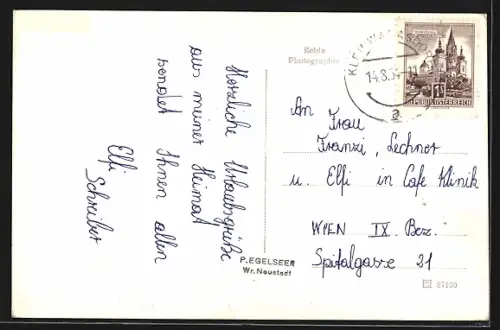 Herzliche Urlaubsgrüße
aus meiner Heimat
sendet Ihnen allen
Elfi
Schreiber
Echte
Photographie
P.EGELSEER
Wr. Neustadt
14.8.
a
1S
REPUBLIK ÖSTERREICH
An Frau
Franzi, Lechner
u. Elfi in Cafe Klinik
WIEN IX. Bez.
Spitalgasse 21
87190